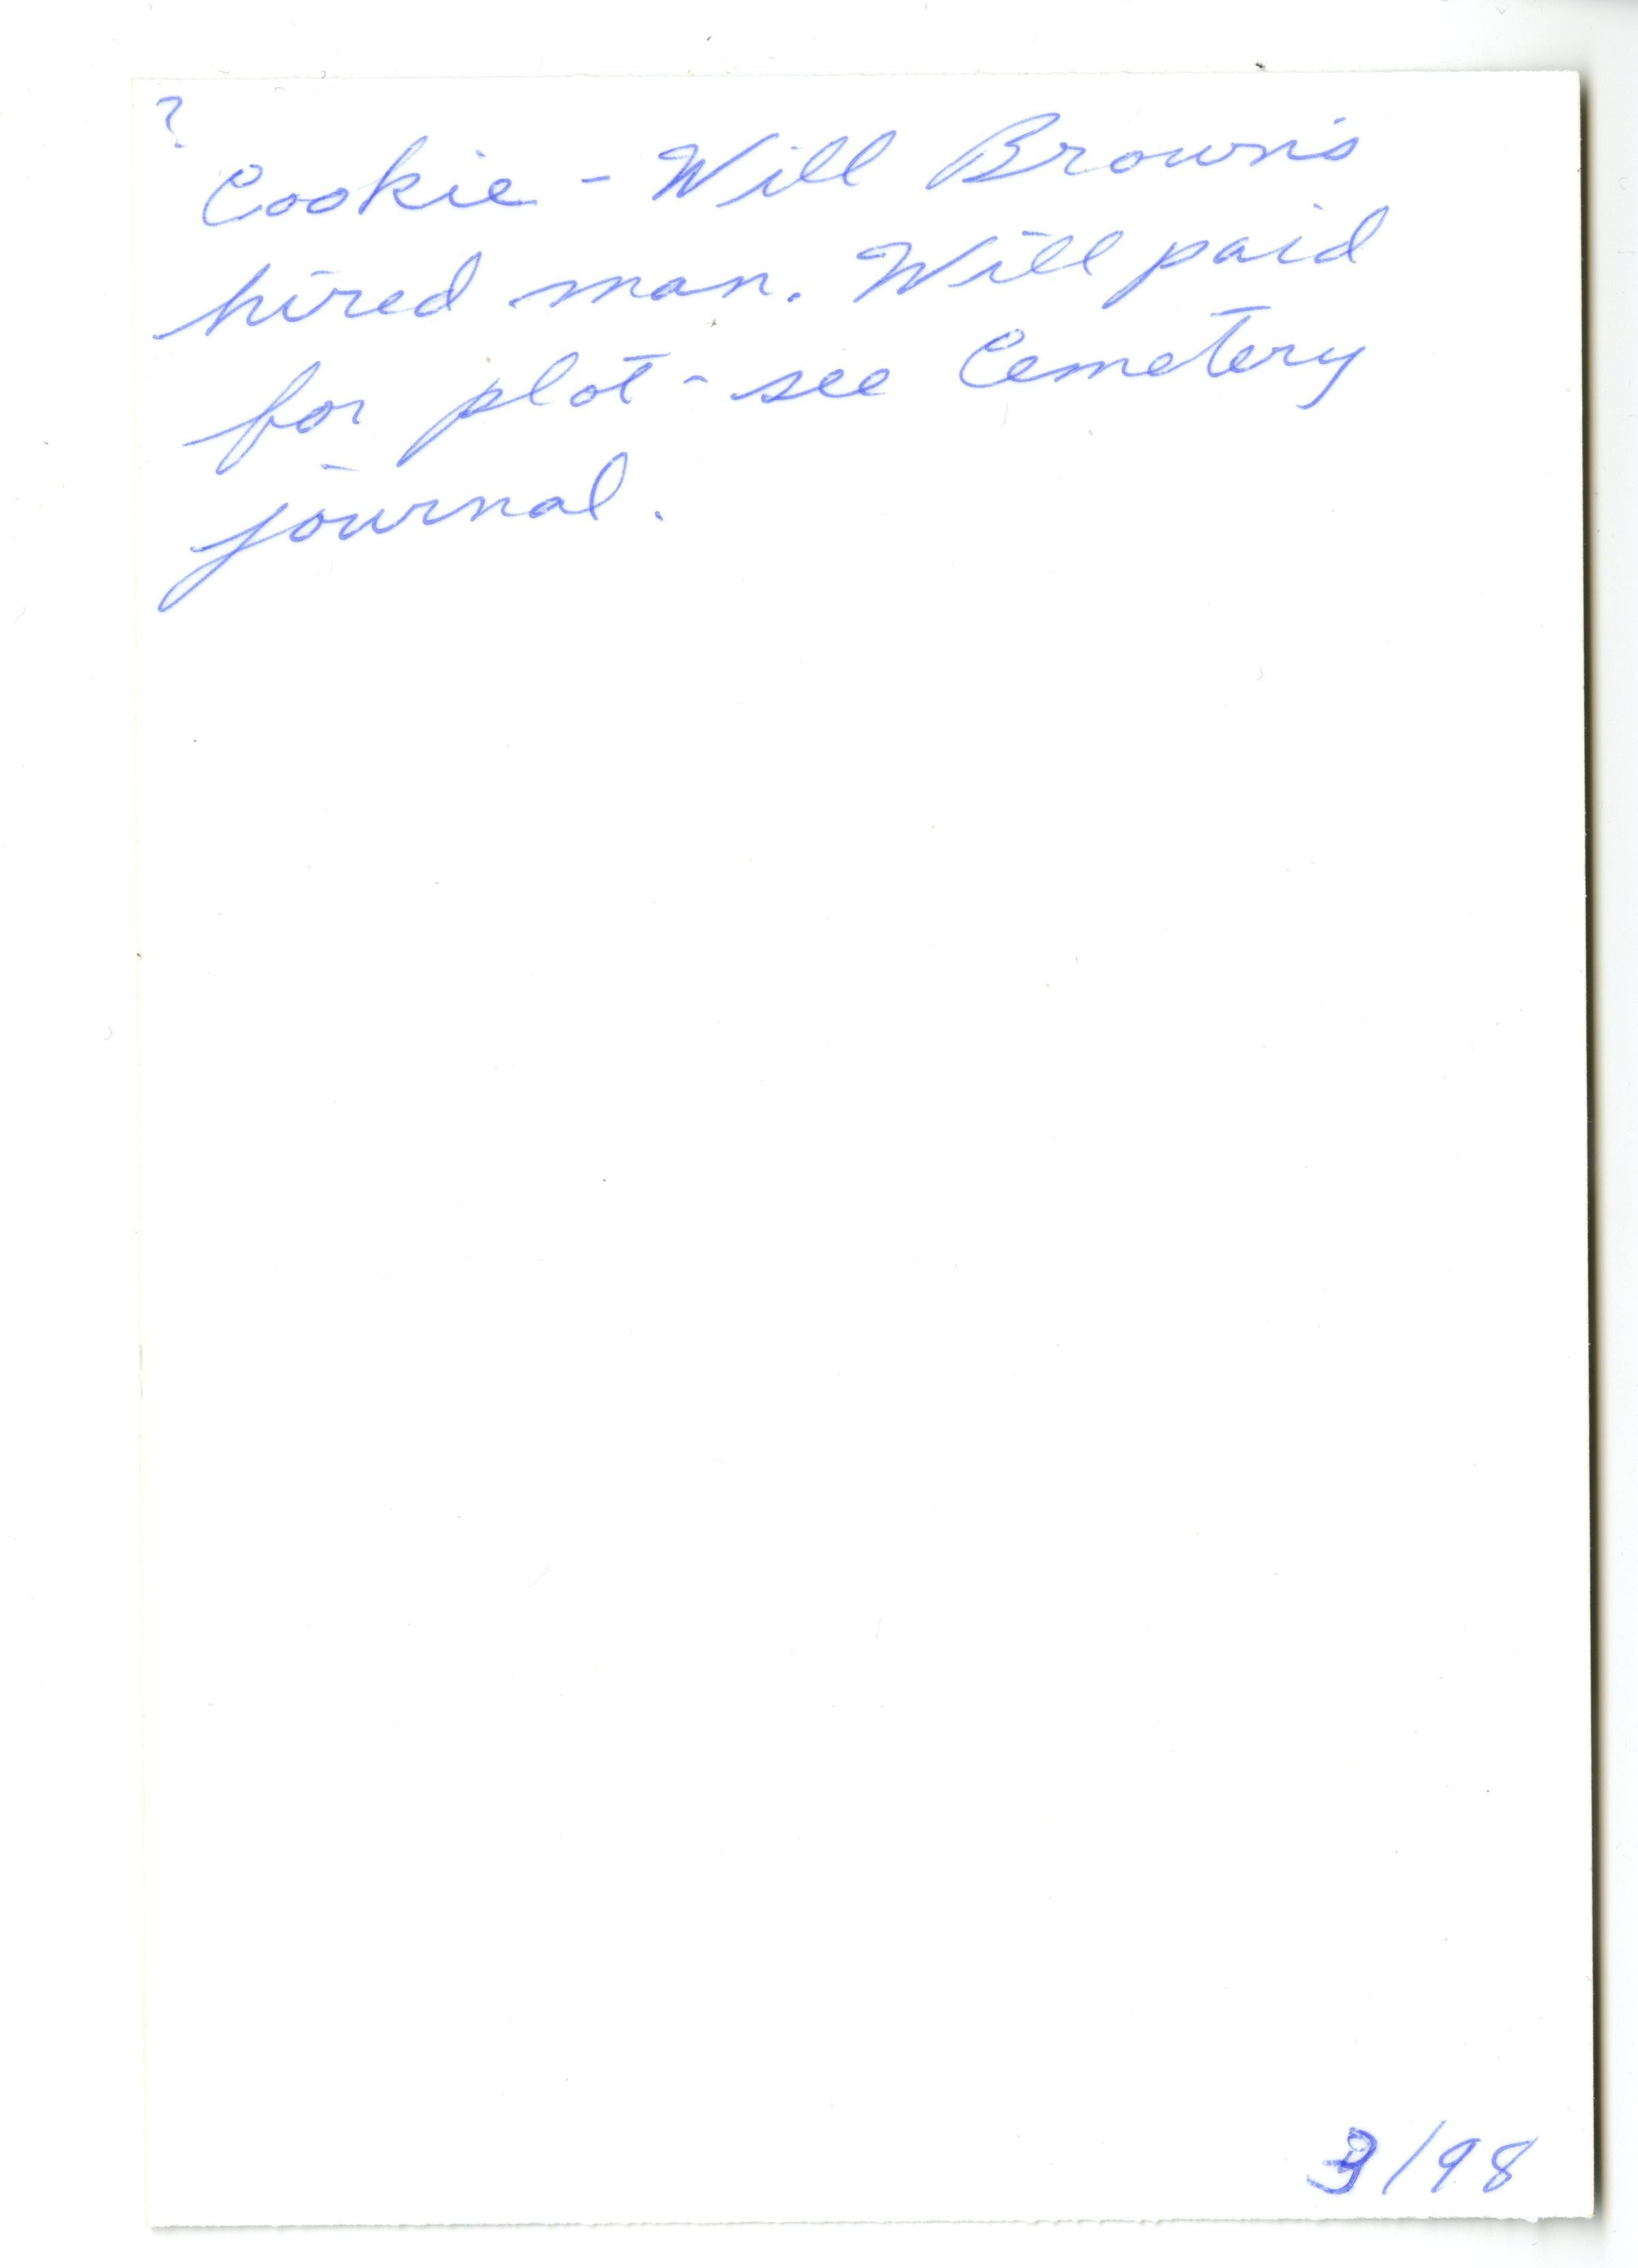 ?
Cookie - Will Brown's
hired man. Will paid
for plot - see Cemetery
journal.
3/98